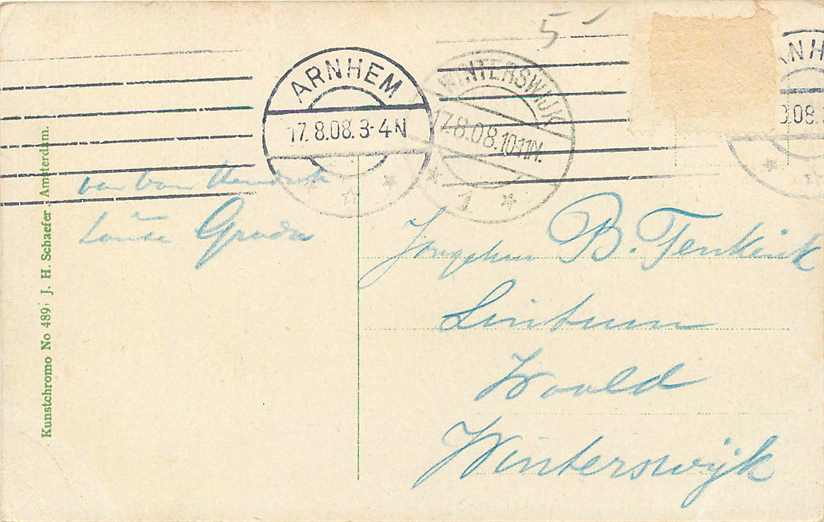 5
ARNHEM
17.8.08.3-4N
WINTERSWIJK
17.8.08.10-11N.
1
van
Grada
B. Tenkink
Lintum
Woold
Winterswijk
Kunstchromo No 489; J. H. Schaefer - Amsterdam.